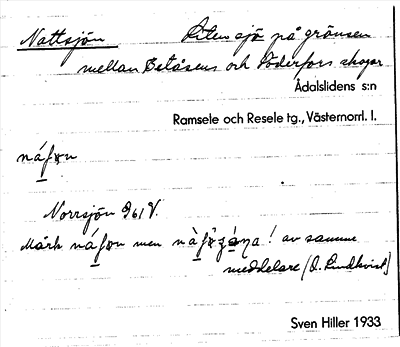 Nattsjön Liten sjö på gränsen
mellan Betåsens och Söderfors skogar
Ådalslidens s:n
Ramsele och Resele tg., Västernorrl. l.
Norrsjön 961 V.
Märk men ! av samme
meddelare (O. Lundkvist)
Sven Hiller 1933